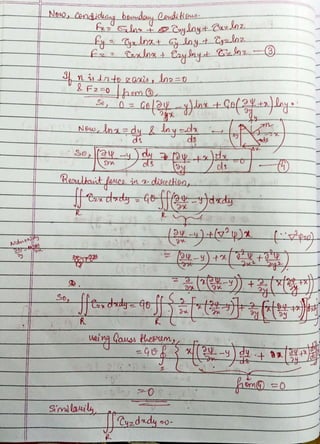 Now, considering boundary Conditions.
Fx = σx lnx + τxy lny + τxz lnz
Fy = τyx lnx + σy lny + τyz lnz
Fz = τzx lnx + τzy lny + σz lnz — ③
If n is ⊥r to z axis, lnz = 0
& Fz = 0 | from ③,
So, 0 = Gθ(∂ψ/∂x - y) lnx + Gθ(∂ψ/∂y + x) lny
Now, lnx = dy/ds & lny = -dx/ds
So, (∂ψ/∂x - y) dy/ds - (∂ψ/∂y + x) dx/ds = 0 — ④
Resultant force in x-direction,
∬ τzx dxdy = Gθ ∬ (∂ψ/∂x - y) dxdy
R
(∂ψ/∂x - y) + (∇²ψ)x (∵ ∇²ψ=0)
= (∂ψ/∂x - y) + x(∂²ψ/∂x² + ∂²ψ/∂y²)
= ∂/∂x [x(∂ψ/∂x - y)] + ∂/∂y [x(∂ψ/∂y + x)]
So, ∬ τzx dxdy = Gθ ∬ { ∂/∂x [x(∂ψ/∂x - y)] + ∂/∂y [x(∂ψ/∂y + x)]
R R
using Gauss theorem,
= Gθ ∮ { x(∂ψ/∂x - y) dy/ds + x(∂ψ/∂y
s
from ④ = 0
= 0
Similarly,
∬ τyz dxdy = 0.
R